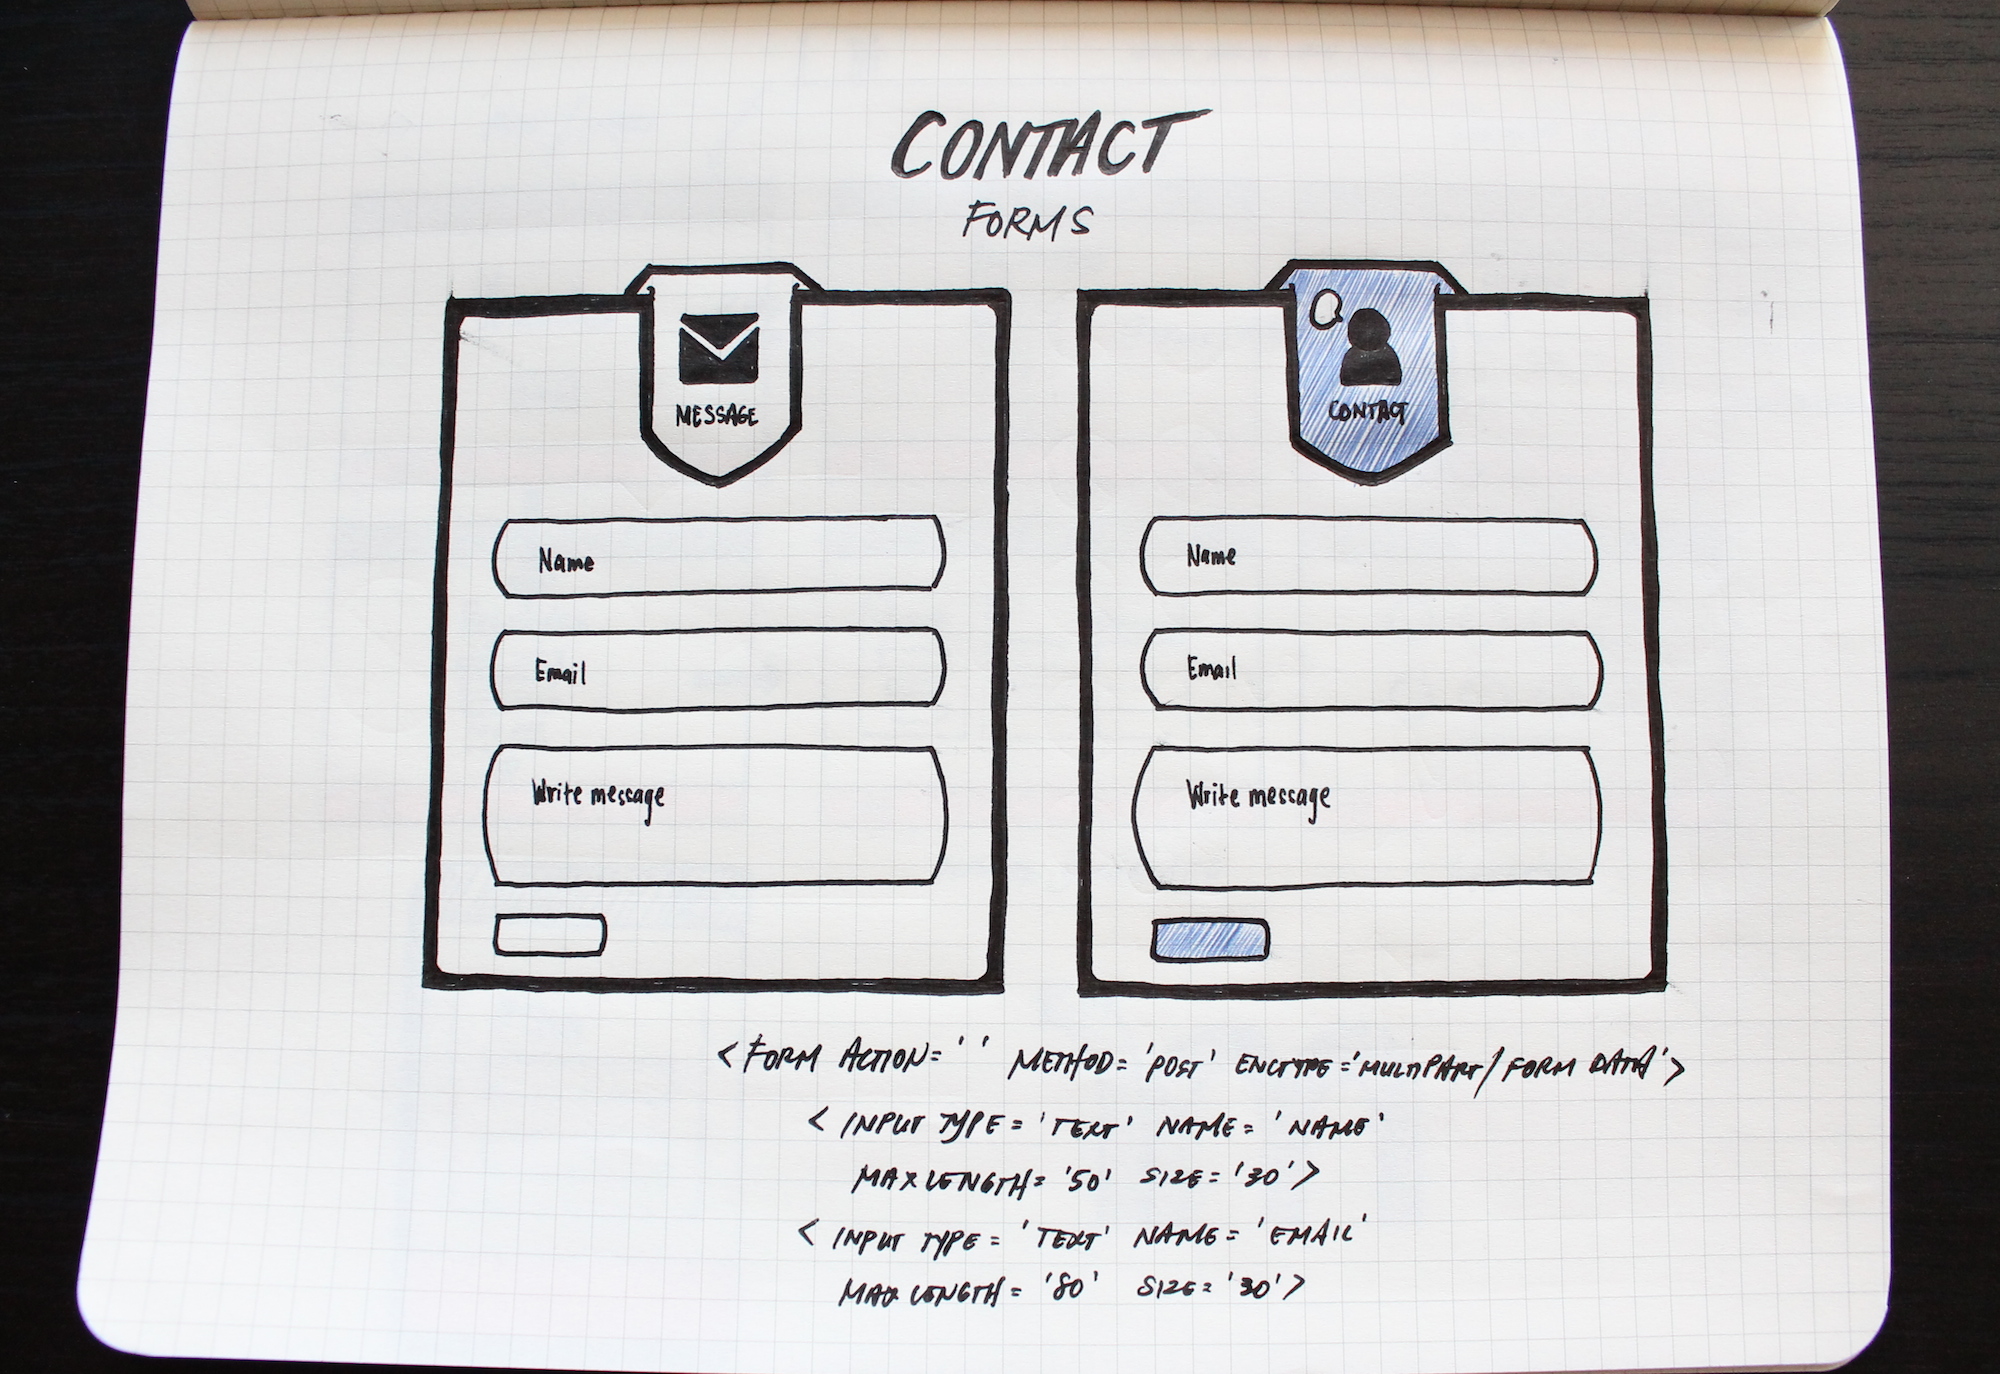 CONTACT
FORMS
MESSAGE
Name
Email
Write message
CONTACT
Name
Email
Write message
<FORM ACTION=' ' METHOD='POST' ENCTYPE='MULTIPART/FORM DATA'>
<INPUT TYPE='TEXT' NAME='NAME'
MAXLENGTH='50' SIZE='30'>
<INPUT TYPE='TEXT' NAME='EMAIL'
MAXLENGTH='80' SIZE='30'>